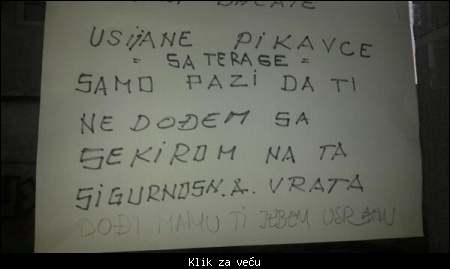 USIJANE PIKAVCE
= SA TERASE =
SAMO PAZI DA TI
NE DOĐEM SA
SEKIROM NA TA
SIGURNOSN.A. VRATA
DOĐI MAMU TI JEBEM USRANU
Klik za veću